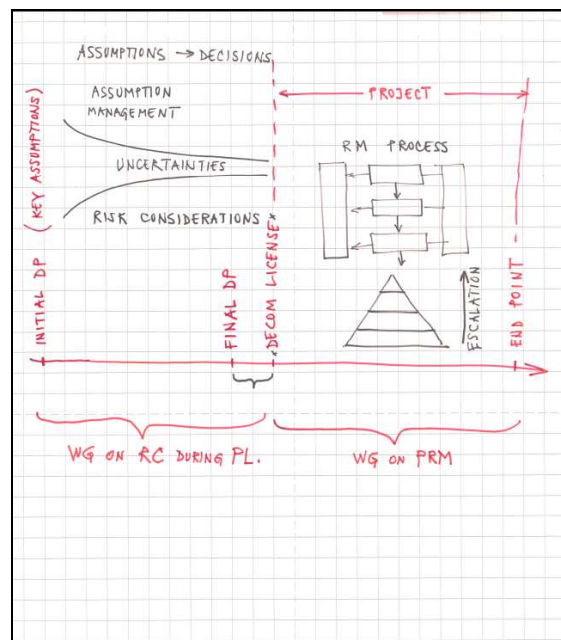 ASSUMPTIONS → DECISIONS
ASSUMPTION
MANAGEMENT
UNCERTAINTIES
RISK CONSIDERATIONS
(KEY ASSUMPTIONS)
INITIAL DP
FINAL DP
*DECOM LICENSE*
PROJECT
RM PROCESS
ESCALATION
END POINT
WG ON RC DURING PL.
WG ON PRM